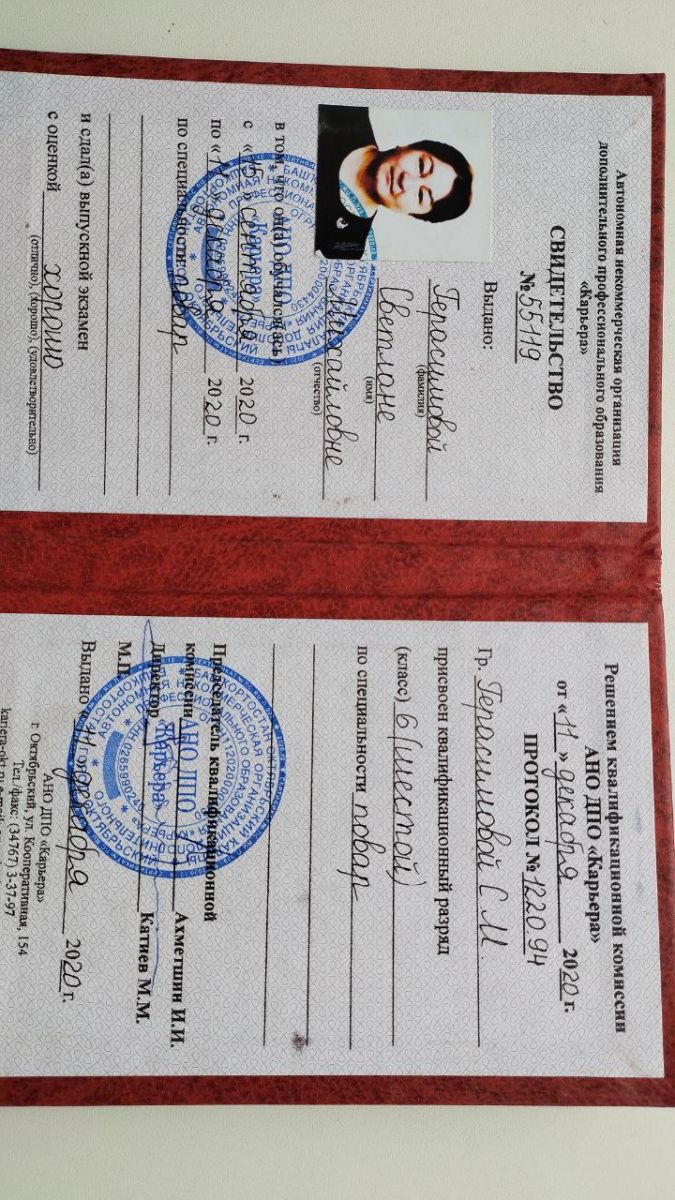 Автономная некоммерческая организация
дополнительного профессионального образования
«Карьера»
СВИДЕТЕЛЬСТВО
№ 55119
Выдано:
Герасимовой
(фамилия)
Светлане
(имя)
Михайловне
(отчество)
в том, что он(а) обучался(ась)
с «15» сентября 2020 г.
по «11» декабря 2020 г.
по специальности: повар
и сдал(а) выпускной экзамен
с оценкой хорошо
(отлично), (хорошо), (удовлетворительно)
Решением квалификационной комиссии
АНО ДПО «Карьера»
от «11» декабря 2020 г.
ПРОТОКОЛ № 122094
Гр. Герасимовой С.М.
присвоен квалификационный разряд
(класс) 6 (шестой)
по специальности повар
Председатель квалификационной
комиссии Ахметшин И.И.
Директор Катиев М.М.
М.П.
Выдано «11» декабря 2020 г.
АНО ДПО «Карьера»
г. Октябрьский, ул. Кооперативная, 154
Тел./факс: (34767) 3-37-97
АНО ДПО
«Карьера»